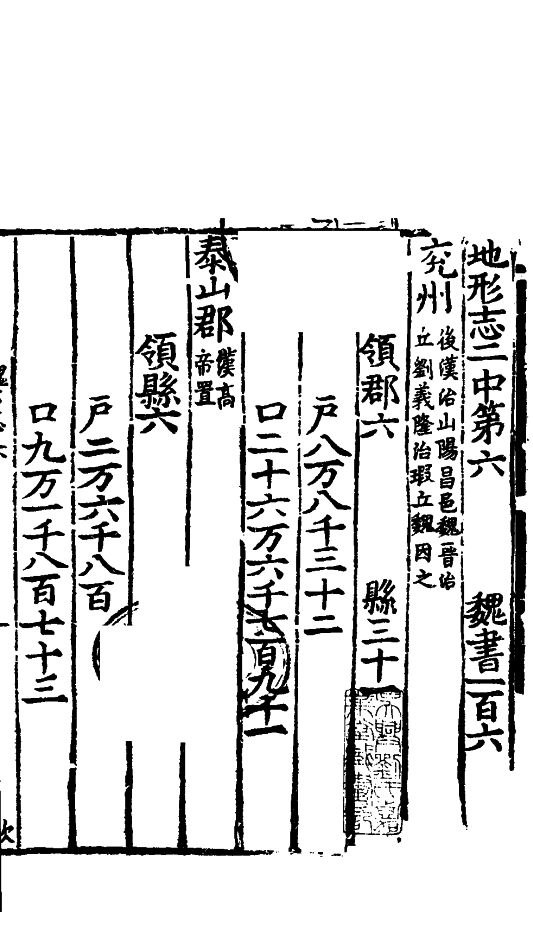 地形志二中第六 魏書一百六
兖州 後漢治山陽昌邑魏晉治
丘劉義隆治瑕丘魏因之
領郡六 縣三十一
戸八万八千三十二
口二十六万六千七百九十一
泰山郡 漢高
帝置
領縣六
戸二万六千八百
口九万一千八百七十三